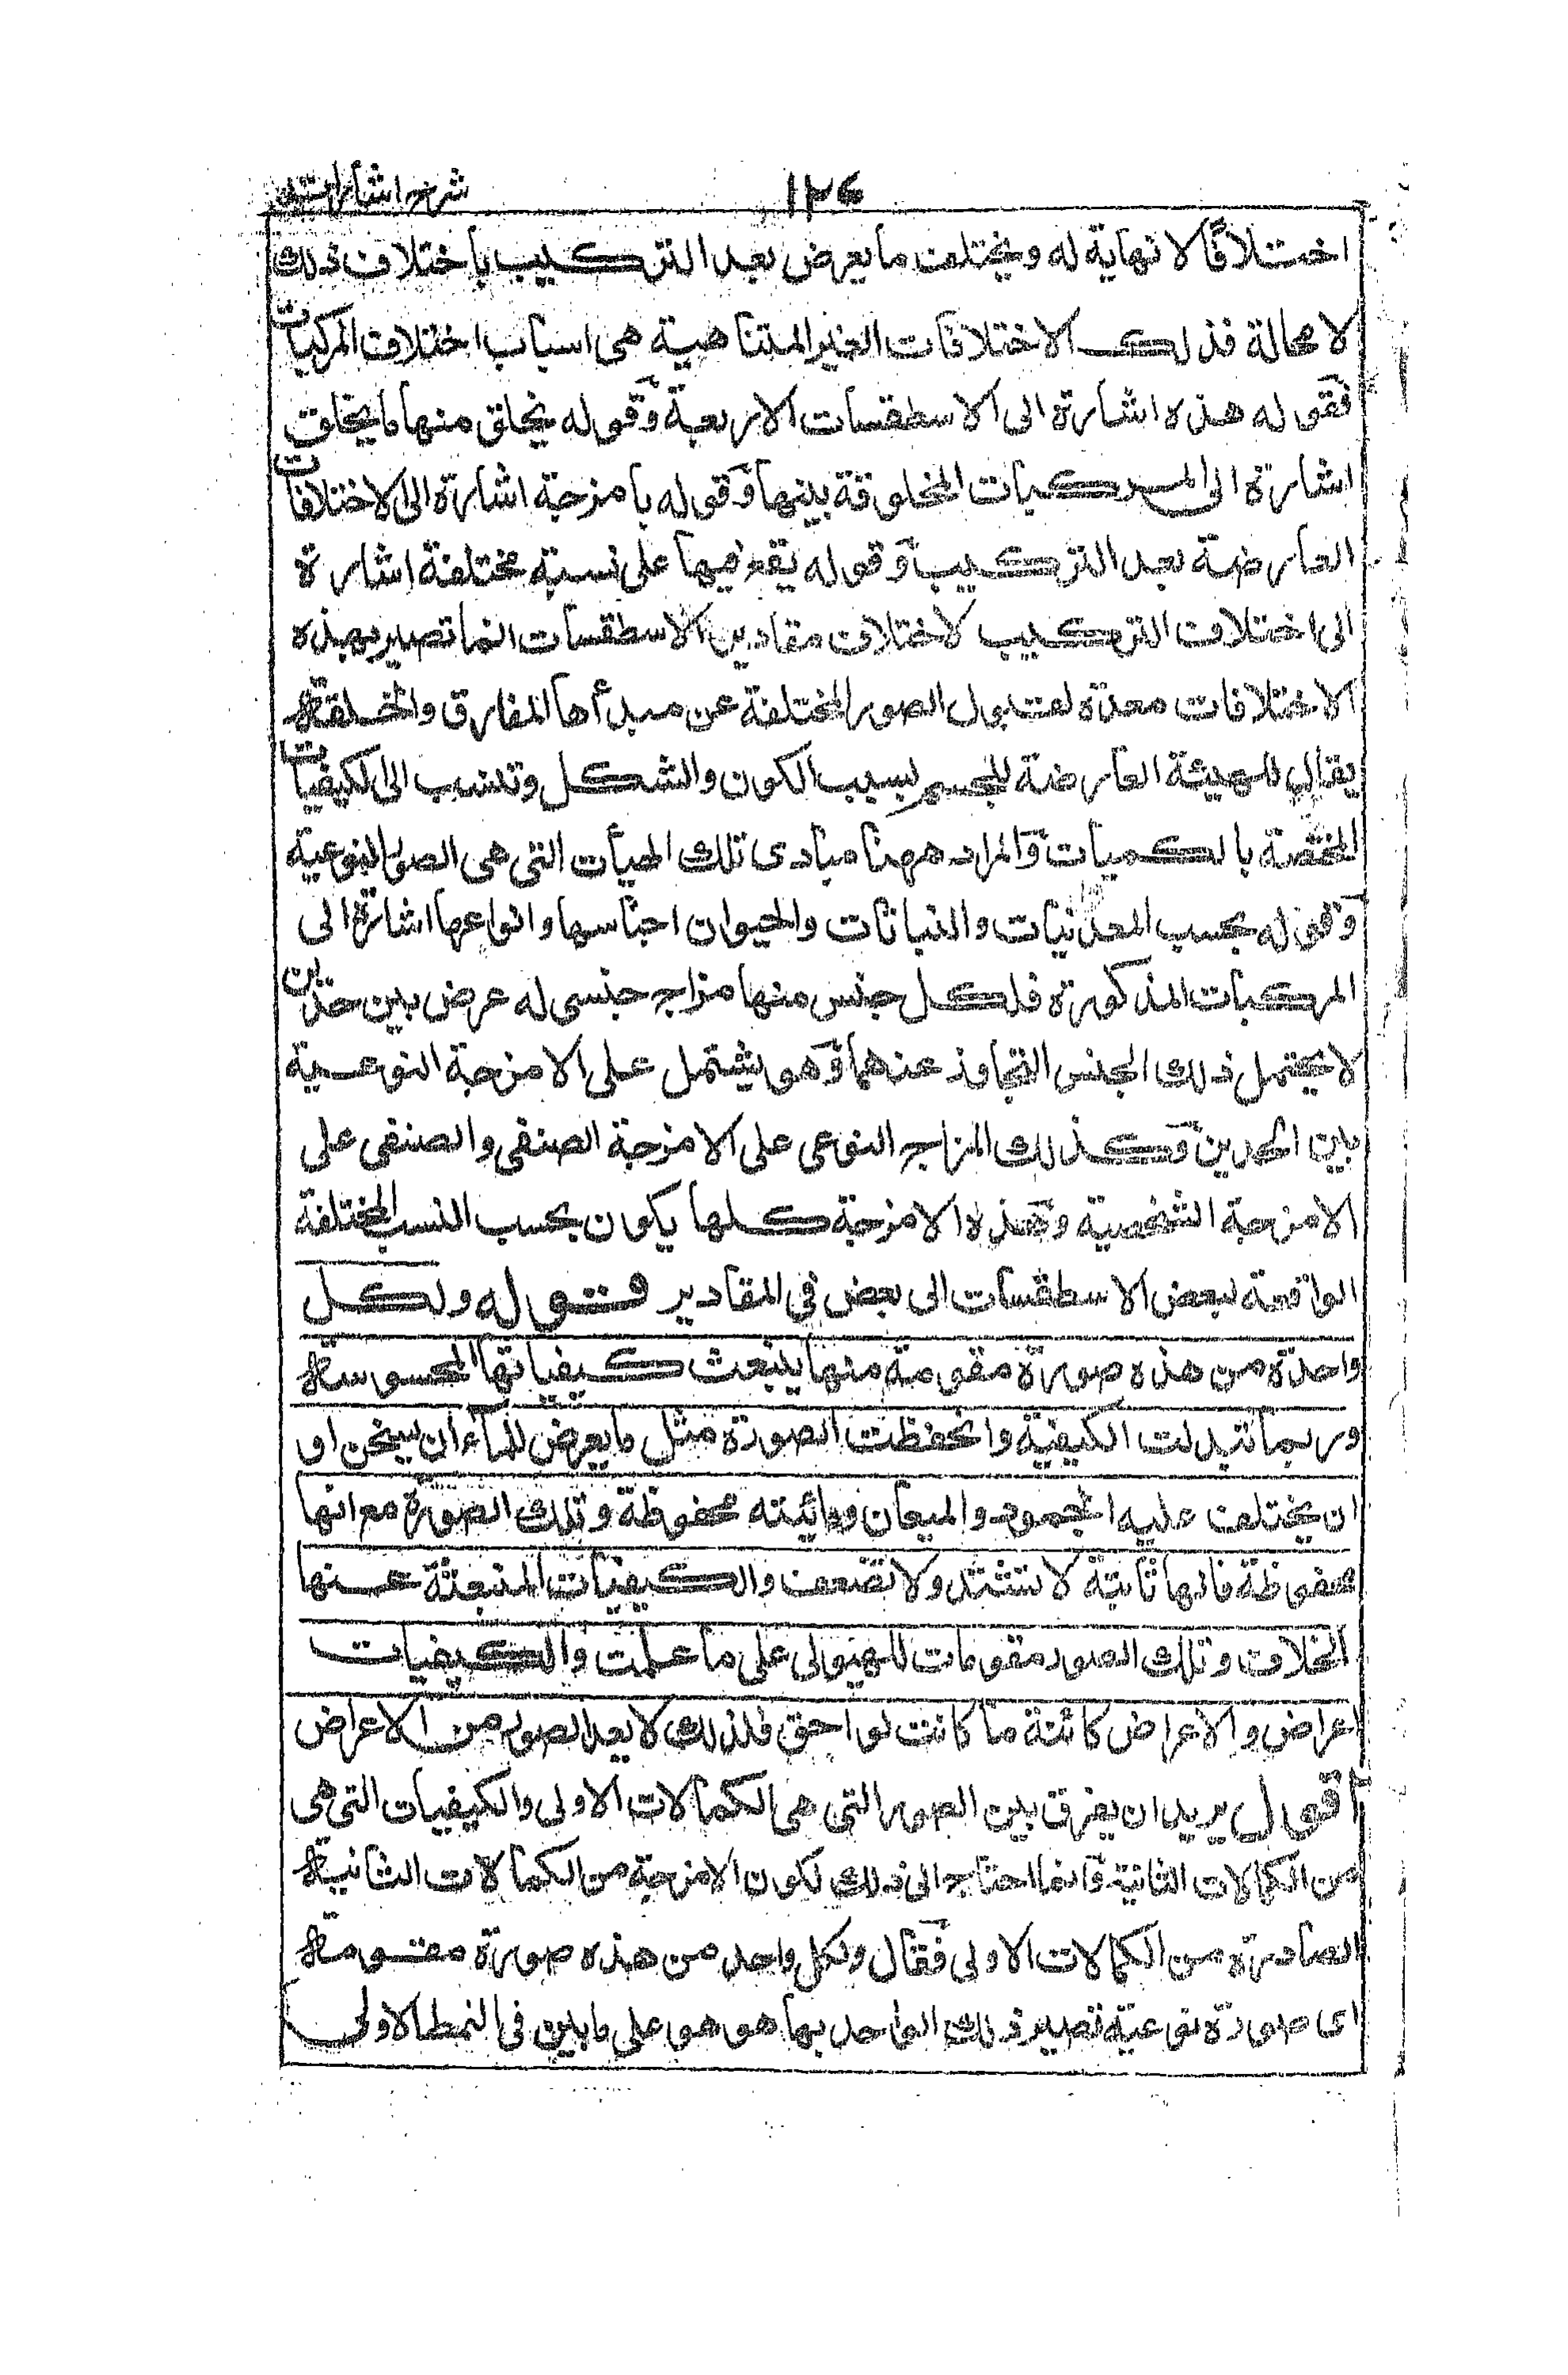 ١٢٦
شرح اشارات
اختلافًا لا نهاية له ويختلف ما يعرض بعد التركيب باختلاف ذلك
لا محالة فذلك الاختلافات الغير المتناهية هى اسباب اختلاف المركبات
فقوله هذه اشارة الى الاسطقسات الاربعة وقوله يخلق منها ما يخلق
اشارة الى المركبات المخلوقة بينها وقوله بامزجة اشارة الى الاختلافات
العارضة بعد التركيب وقوله يقع فيها على نسبة مختلفة اشارة
الى اختلاف التركيب لاختلاف مقادير الاسطقسات انما تصير بهذه
الاختلافات معدة لقبول الصور المختلفة عن مبدأها المفارق والخلقة
يقال للهيئة العارضة للجسم بسبب الكون والشكل وتنسب الى الكيفيات
المختصة بالكميات والمراد ههنا مبادى تلك الهيأت التى هى الصور النوعية
وقوله بحسب المعدنيات والنباتات والحيوان اجناسها وانواعها اشارة الى
المركبات المذكورة فلكل جنس منها مزاج جنسى له عرض بين حدين
لا يحتمل ذلك الجنس التجاوز عنهما وهو يشتمل على الامزجة النوعية
بين الحدين وكذلك المزاج النوعى على الامزجة الصنفى والصنفى على
الامزجة الشخصية وهذه الامزجة كلها يكون بحسب النسب المختلفة
الواقعة لبعض الاسطقسات الى بعض فى المقادير قوله ولكل
واحدة من هذه صورة مقومة منها ينبعث كيفياتها المحسوسة
وربما تبدلت الكيفية وانحفظت الصورة مثل ما يعرض للماء ان يسخن او
ان يختلف عليه الجمود والميعان ومائيته محفوظة وتلك الصورة مع انها
محفوظة فانها ثابتة لا تشتد ولا تضعف والكيفيات المنبعثة عنها
بالخلاف وتلك الصور مقومات للهيولى على ما علمت والكيفيات
اعراض والاعراض كائنة ما كانت لواحق فلذلك لا يعد الصور من الاعراض
اقول يريد ان يفرق بين الصور التى هى الكمالات الاولى والكيفيات التى هى
من الكمالات الثانية وانما احتاج الى ذلك لكون الامزجة من الكمالات الثانية
الصادرة من الكمالات الاولى فقال ولكل واحد من هذه صورة مقومة
اى صورة نوعية تصير ذلك الواحد بها هو هو على ما بين فى النمط الاولى